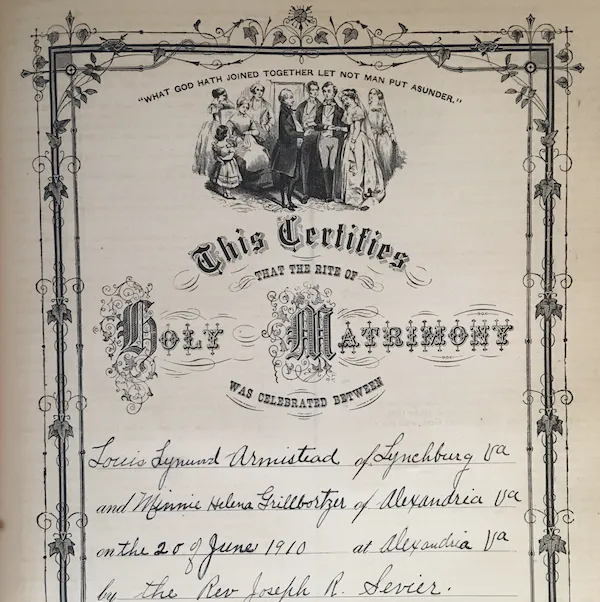 "WHAT GOD HATH JOINED TOGETHER LET NOT MAN PUT ASUNDER."
This Certifies
THAT THE RITE OF
HOLY MATRIMONY
WAS CELEBRATED BETWEEN
Louis Lynund Armistead of Lynchburg Va
and Minnie Helena Grillbortzer of Alexandria Va
on the 20 of June 1910 at Alexandria Va
by the Rev Joseph R. Sevier.